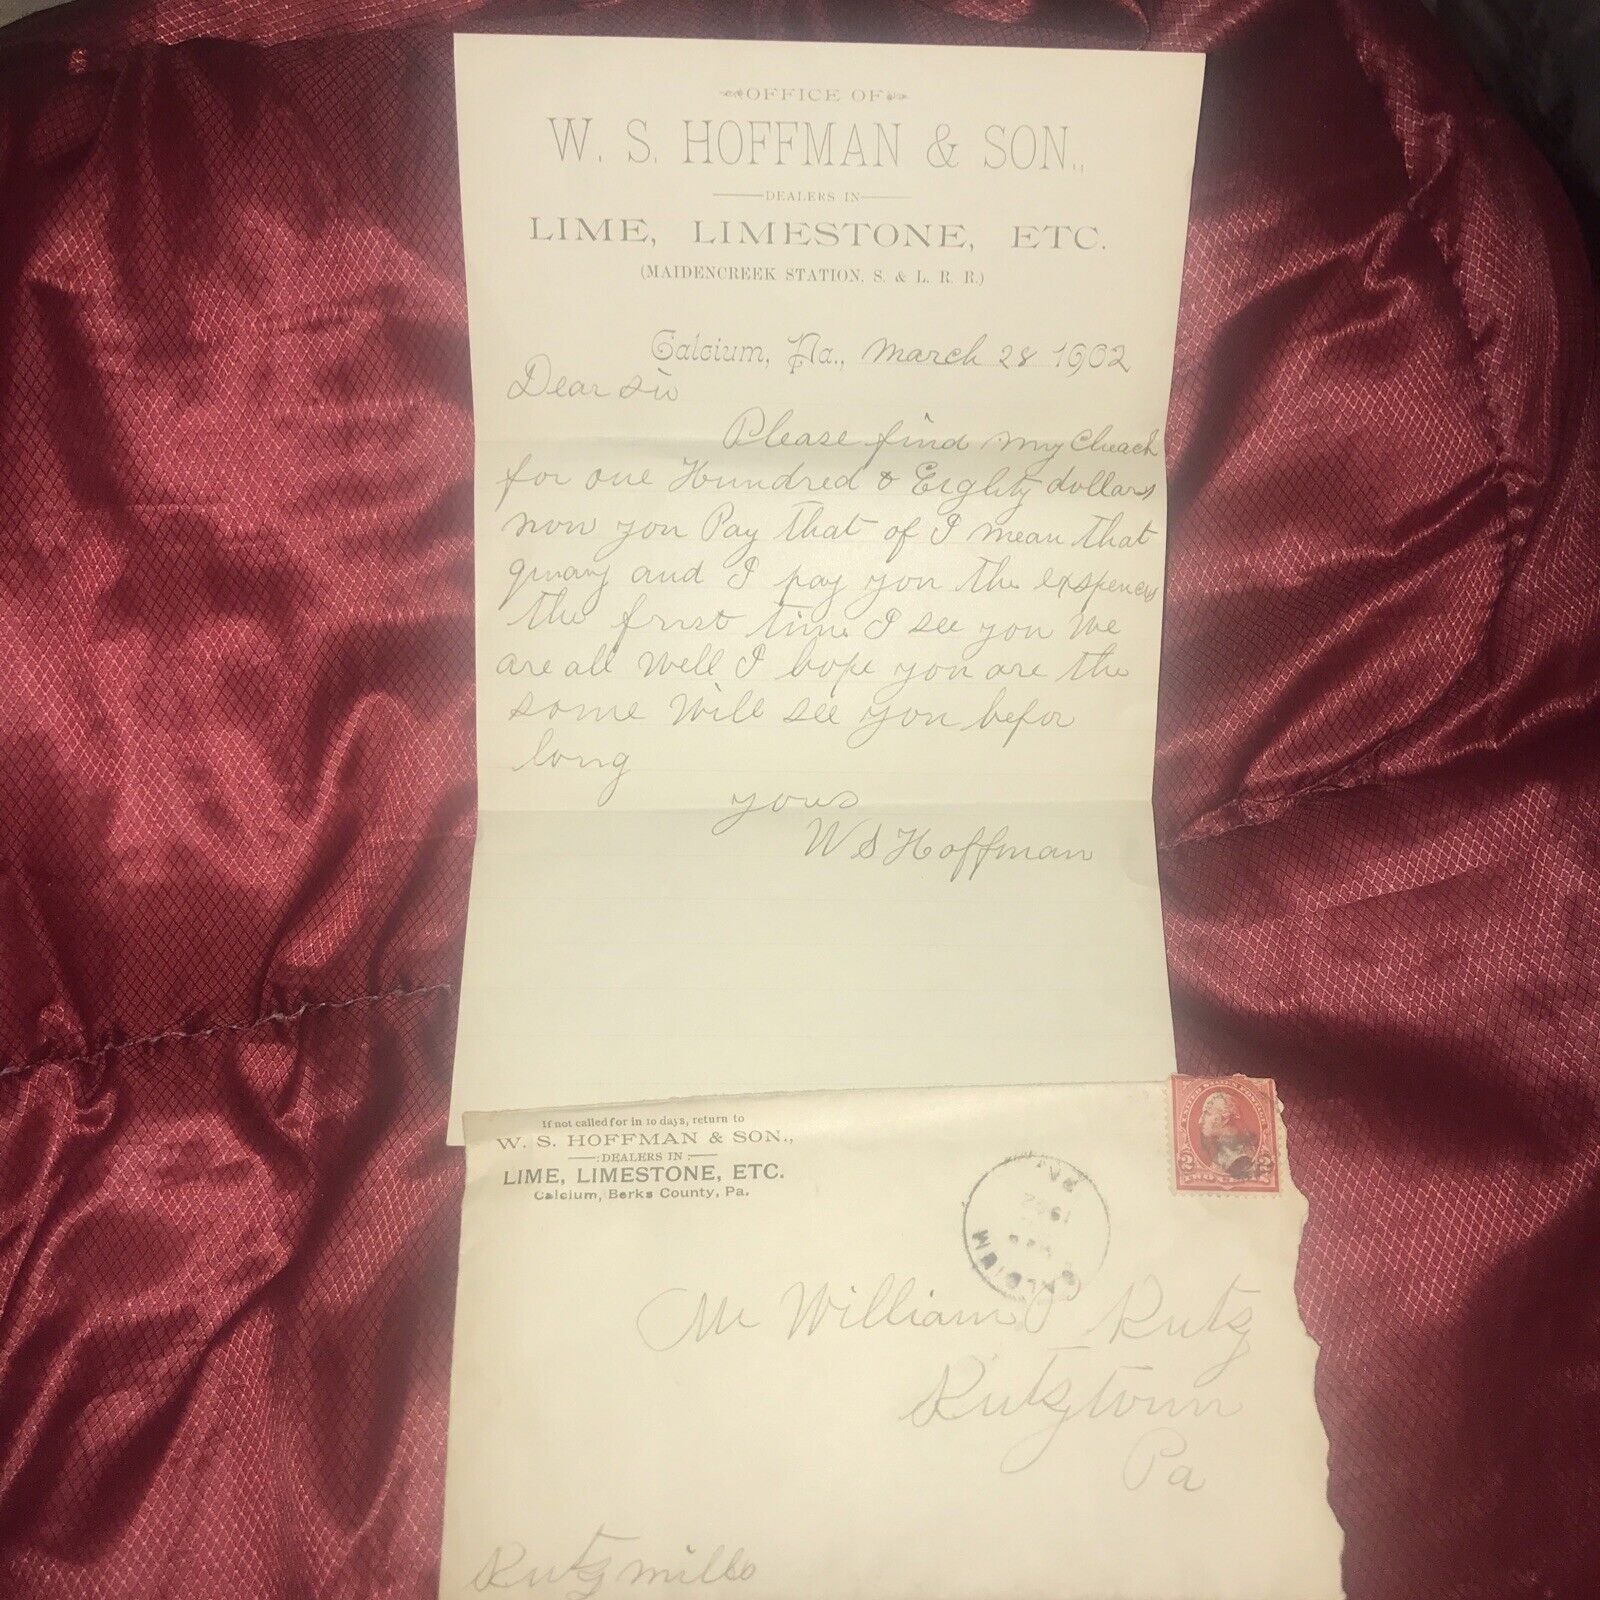 OFFICE OF
W. S. HOFFMAN & SON.,
DEALERS IN
LIME, LIMESTONE, ETC.
(MAIDENCREEK STATION, S. & L. R. R.)
Calcium, Pa., March 28 1902
Dear Sir
Please find my Cheack
for one Hundred & Eighty dollars
now you Pay that of I mean that
quary and I pay you the exspences
the frist time I see you We
are all Well I hope you are the
some Will see you befor
long
yous
W S Hoffman
If not called for in 10 days, return to
W. S. HOFFMAN & SON.,
DEALERS IN
LIME, LIMESTONE, ETC.
Calcium, Berks County, Pa.
CALCIUM
PA.
1902
2 TWO 2
Mr William Kutz
Kutztown
Pa
Kutz mills